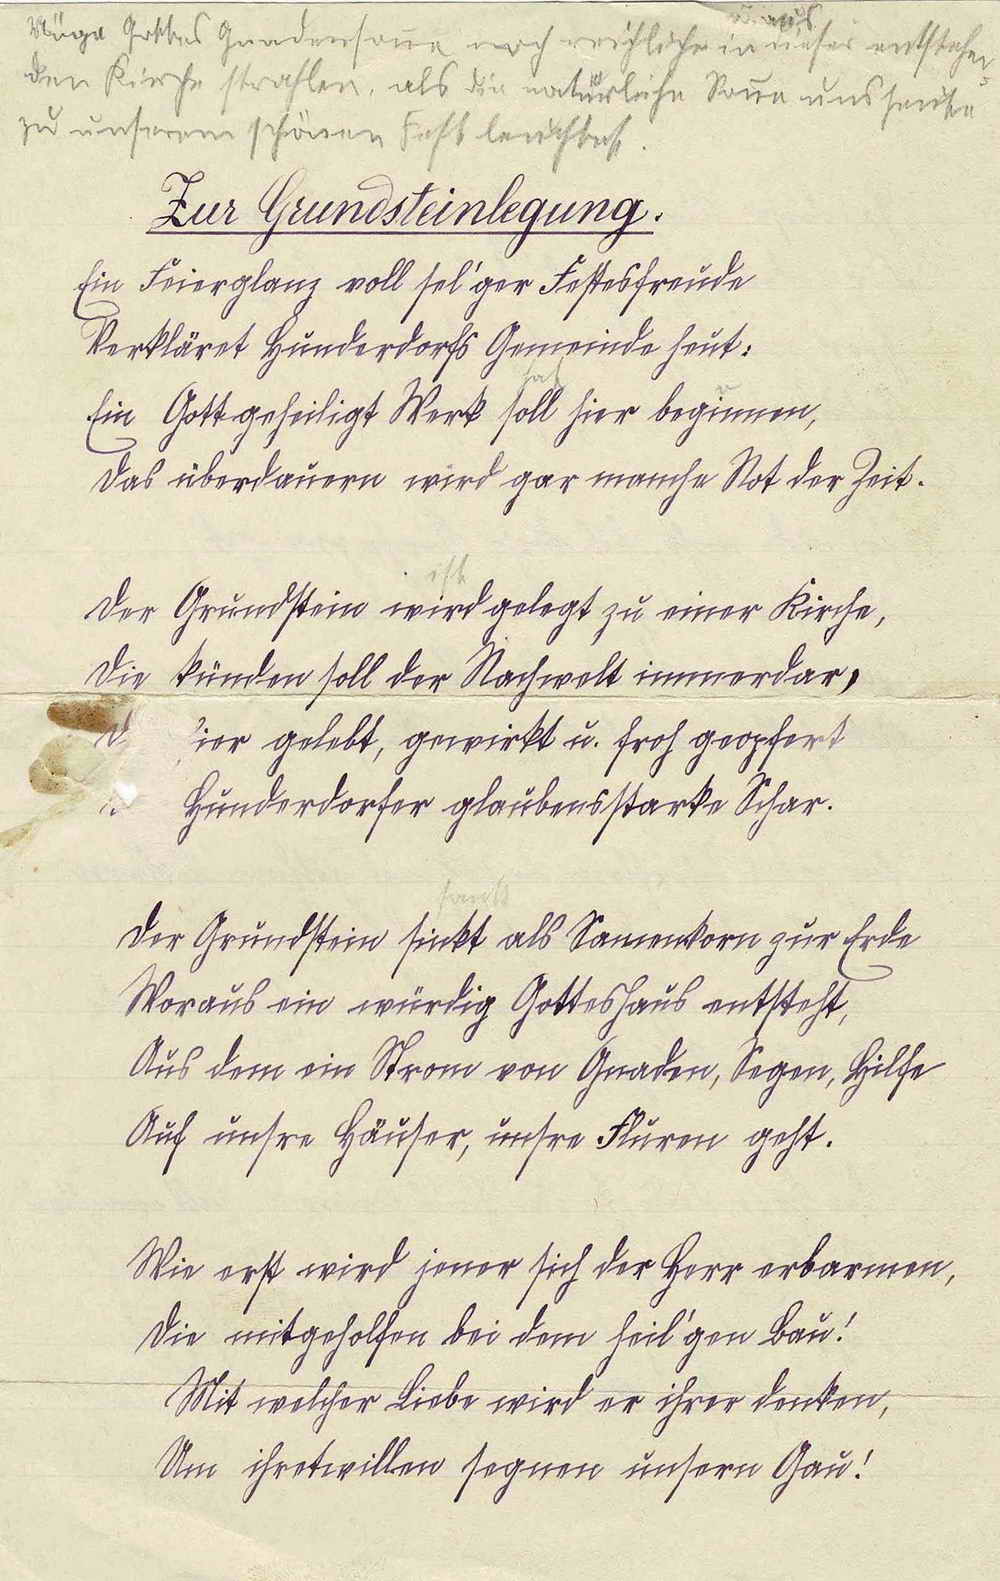 u. aus
Möge Gottes Gnadensonne noch reichlicher in dieser entstehen-
den Kirche strahlen, als die natürliche Sonne uns heute
zu unserem schönen Fest leuchtet.
Zur Grundsteinlegung.
Ein Feierglanz voll sel'ger Festesfreude
Verkläret Hunderdorfs Gemeinde heut:
hat
Ein Gott geheiligt Werk soll hier beginnen,
Das überdauern wird gar manche Not der Zeit.
ist
Der Grundstein wird gelegt zu einer Kirche,
Die künden soll der Nachwelt immerdar,
D ier gelebt, gewirkt u. froh geopfert
Hunderdorfer glaubensstarke Schar.
sank
Der Grundstein sinkt als Samenkorn zur Erde
Woraus ein würdig Gotteshaus entsteht,
Aus dem ein Strom von Gnaden, Segen, Hilfe
Auf unsre Häuser, unsre Fluren geht.
Wie erst wird jener sich der Herr erbarmen,
Die mitgeholfen bei dem heil'gen Bau!
Mit welcher Liebe wird er ihrer denken,
Um ihretwillen segnen unsern Gau!